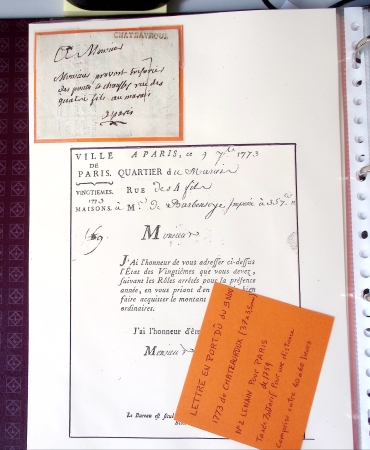 CHATEAUROUX
A Monsieur
Monsieur prevost tresorier
des ponts & chaussées rue des
quatre fils au marais
a paris
VILLE
DE
PARIS.
VINGTIEMES.
1773
MAISONS.
A PARIS, ce 9 7bre 1773
QUARTIER du Marais
RUE des 4 fils
à Mr. de Imposée à 357
Monsieur
J'AI l'honneur de vous adresser ci-dessus
l'Etat des Vingtiémes que vous devez,
suivant les Rôles arrêtés pour la présente
année, en vous priant d'en
faire acquitter le montant
ordinaires.
J'ai l'honneur d'être
Monsieur
Le Bureau est
LETTRE EN PORT DÛ du 9 NOV
1773 de CHATEAUROUX (37x3.5mm)
N°2 LENAIN POUR PARIS
de 1759
Taxée Tarif Pour une distance
Comprise entre 60 à 80 lieues